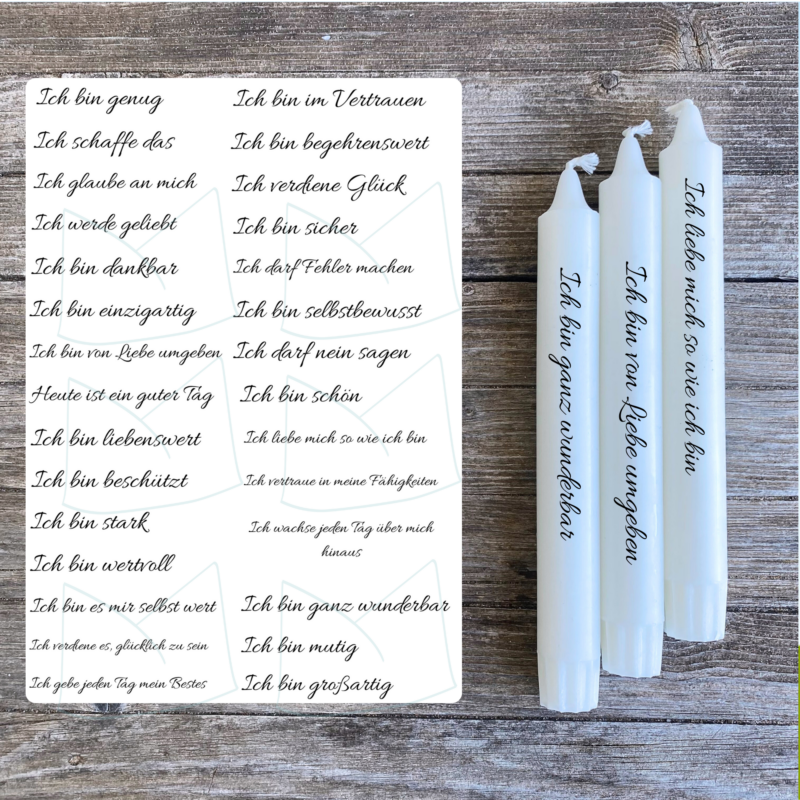 Ich bin genug
Ich schaffe das
Ich glaube an mich
Ich werde geliebt
Ich bin dankbar
Ich bin einzigartig
Ich bin von Liebe umgeben
Heute ist ein guter Tag
Ich bin liebenswert
Ich bin beschützt
Ich bin stark
Ich bin wertvoll
Ich bin es mir selbst wert
Ich verdiene es, glücklich zu sein
Ich gebe jeden Tag mein Bestes
Ich bin im Vertrauen
Ich bin begehrenswert
Ich verdiene Glück
Ich bin sicher
Ich darf Fehler machen
Ich bin selbstbewusst
Ich darf nein sagen
Ich bin schön
Ich liebe mich so wie ich bin
Ich vertraue in meine Fähigkeiten
Ich wachse jeden Tag über mich
hinaus
Ich bin ganz wunderbar
Ich bin mutig
Ich bin großartig
Ich bin ganz wunderbar
Ich bin von Liebe umgeben
Ich liebe mich so wie ich bin